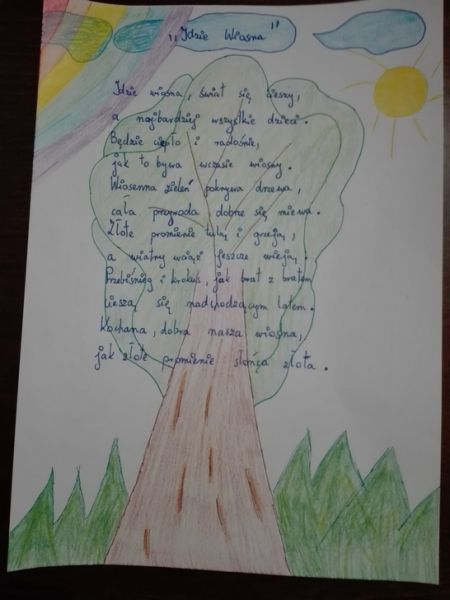 "Idzie Wiosna"
Idzie wiosna, świat się cieszy,
a najbardziej wszystkie dzieci.
Będzie ciepło i radośnie,
jak to bywa wczasie wiosny.
Wiosenna zieleń pokrywa drzewa,
cała przyroda dobrze się miewa.
Złote promienie tulą i grzeją,
a wiatry wciąż jeszcze wieją.
Przebiśnieg i krokus, jak brat z bratem
cieszą się nadchodzącym latem.
Kochana, dobra nasza wiosna,
jak złote promienie słońca złota.